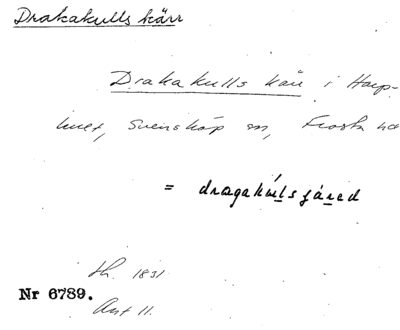 Drakakulls kärr
Drakakulls kärr i Harp-
hult, Svensköp sn, Frosta hd
= dragakúlsjárad
lh. 1831
Nr 6789.
Ant 11.